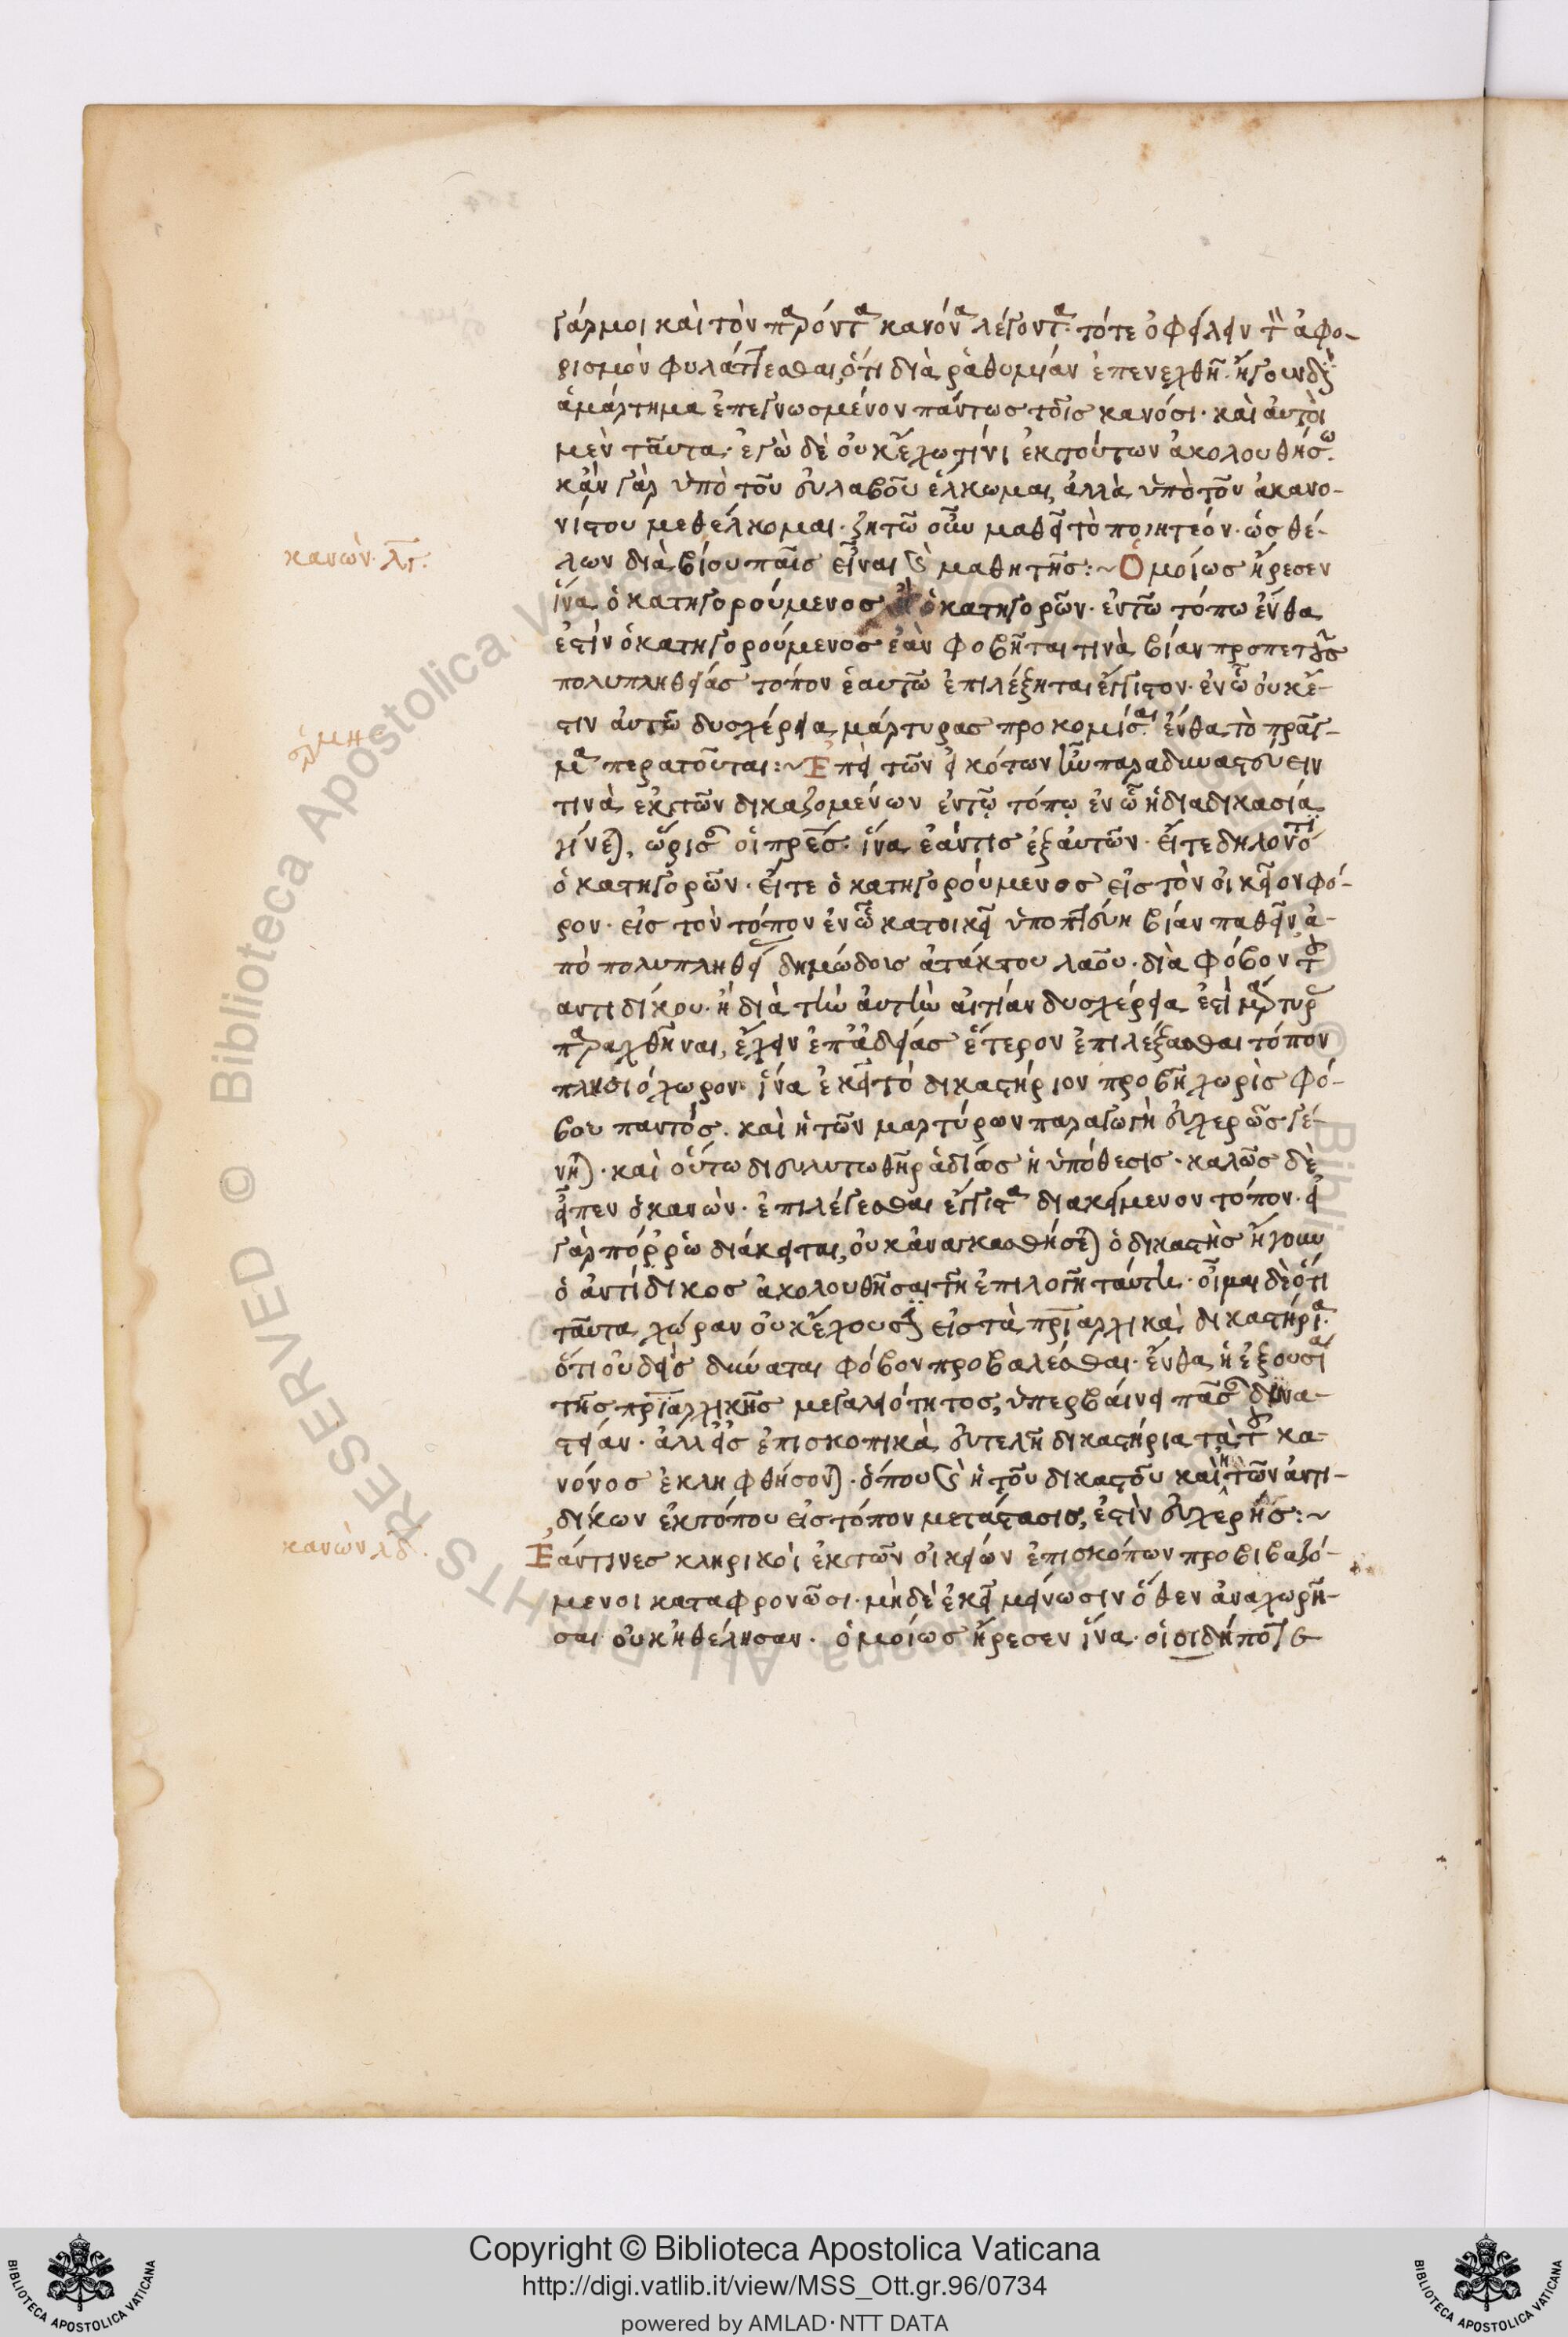 γάρ μοι καὶ τὸν παρόντα κανόνα λέγοντα· τότε ὀφείλειν τὸν ἀφο-
ρισμὸν φυλάττεσθαι, ὅτι διὰ ῥαθυμίαν ἐπενεχθῆ· ἤγουν δι'
ἁμάρτημα ἐπεγνωσμένον πάντως τοῖς κανόσι· καὶ αὐτοὶ
μὲν ταῦτα· ἐγὼ δὲ οὐκ ἔχω τίνι ἐκ τούτων ἀκολουθήσω.
κἂν γὰρ ὑπὸ τοῦ εὐλαβοῦς ἕλκωμαι, ἀλλὰ ὑπὸ τοῦ ἀκανο-
νίστου μεθέλκομαι· ζητῶ οὖν μαθεῖν τὸ ποιητέον· ὡς θέ-
κανὼν· λγ.
λων διὰ βίου παῖς εἶναι καὶ μαθητής:~ Ὁμοίως ἤρεσεν
ἵνα ὁ κατηγορούμενος ὁ κατηγορῶν· ἐν τῶ τόπω ἔνθα
ἐστὶν ὁ κατηγορούμενος ἐὰν φοβῆται τινὰ βίαν προπετοῦς
πολυπληθείας τόπον ἑαυτῶ ἐπιλέξηται ἔγγιστον· ἐν ὧ οὐκ ἔ-
στιν αὐτῶ δυσχέρεια μάρτυρας προκομίσαι· ἔνθα τὸ πρᾶγ-
μα περατοῦται:~ Ἐπεὶ τῶν εἰκότων ἦν παραδυναστεύειν
τινὰ ἐκ τῶν δικαζομένων ἐν τῷ τόπῳ ἐν ᾧ ἡ διαδικασία
γίνεται, ὥρισαν οἱ πρες· ἵνα ἐάν τις ἐξ αὐτῶν· εἴτε δηλονότι
ὁ κατηγορῶν· εἴτε ὁ κατηγορούμενος εἰς τὸν οἰκεῖον φό-
ρον· εἰς τὸν τόπον ἐν ᾧ κατοικεῖ ὑποπτεύη βίαν παθεῖν ἀ-
πὸ πολυπληθεί δημώδους ἀτάκτου λαοῦ· διὰ φόβον τοῦ
αντιδίκου· ἢ διὰ τὴν αὐτὴν αἰτίαν δυσχέρεια ἐστὶ μάρτυρας
παραχθῆναι, ἔχειν ἐπ' ἀδείας ἕτερον ἐπιλέξασθαι τόπον
πλησιόχωρον· ἵνα ἐκεῖ τὸ δικαστήριον προβῆ χωρὶς φό-
βου παντός. καὶ ἡ τῶν μαρτύρων παραγωγὴ εὐχερῶς γέ-
νηται· καὶ οὕτω διευλυτωθῆ ῥαδίως ἡ ὑπόθεσις· καλῶς δὲ
εἶπεν ὁ κανὼν· ἐπιλέγεσθαι ἔγγιστα διακείμενον τόπον· εἰ
γὰρ πόῤῥω διάκειται, οὐκ ἀναγκασθήσεται ὁ δικαστὴς ἤγουν
ὁ ἀντίδικος ἀκολουθῆσαι τῆ ἐπιλογῆ ταύτη· οἶμαι δὲ ὅτι
ταῦτα χώραν οὐκ ἔχουσιν εἰς τὰ πριαρχικὰ δικαστήρια·
ὅτι οὐδεὶς δύναται φόβον προβαλέσθαι· ἔνθα ἡ ἐξουσία
τῆς πριαρχικῆς μεγαλειότητος, ὑπερβαίνει πᾶσαν δυνα-
στείαν· ἀλλ' εἰς ἐπισκοπικὰ εὐτελῆ δικαστήρια τὰ τοῦ κα-
νόνος ἐκληφθήσονται· ὅπου καὶ ἡ τοῦ δικαστοῦ καὶ ἡ τῶν ἀντι-
δίκων ἐκ τόπου εἰς τόπον μετάστασις, ἐστὶν εὐχερής:~
κανὼν λδ.
Ἐάν τινες κληρικοὶ ἐκ τῶν οἰκείων ἐπισκόπων προβιβαζό-
μενοι καταφρονῶσι· μὴ δὲ ἐκεῖ μείνωσιν ὅθεν ἀναχωρῆ-
σαι οὐκ ἠθέλησαν· ὁμοίως ἤρεσεν ἵνα· οἱοιδήποτε
Copyright © Biblioteca Apostolica Vaticana
http://digi.vatlib.it/view/MSS_Ott.gr.96/0734
powered by AMLAD·NTT DATA
BIBLIOTECA APOSTOLICA VATICANA
BIBLIOTECA APOSTOLICA VATICANA